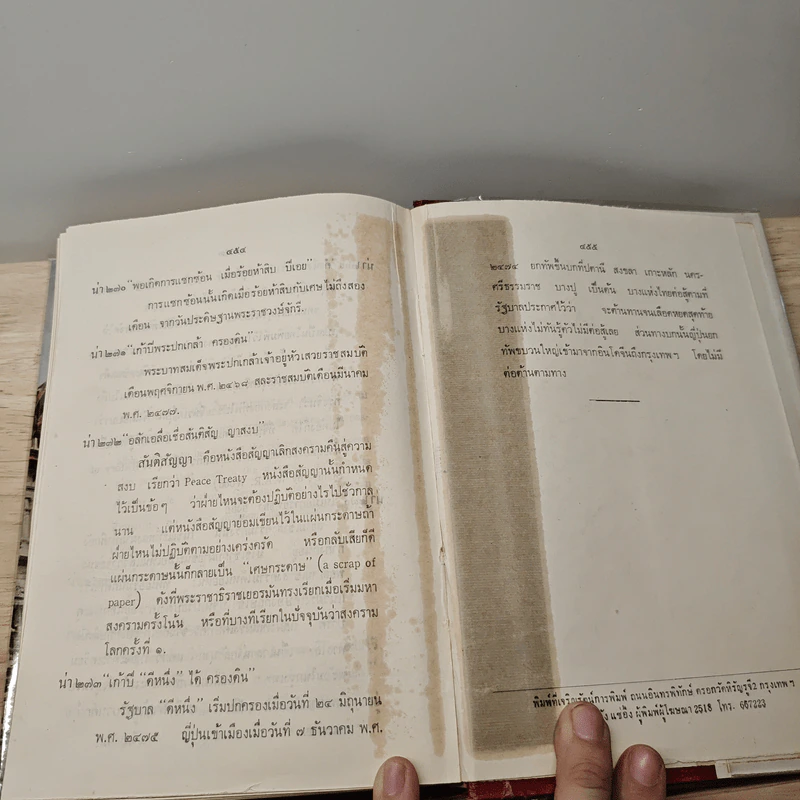 ๔๕๔
น่า ๒๗๐ “พอเกิดการแซกซ้อน เมื่อร้อยห้าสิบ ปีเอย”
การแซกซ้อนนั้นเกิดเมื่อร้อยห้าสิบกับเศษไม่ถึงสอง
เดือน จากวันประดิษฐานพระราชวงษ์จักรี.
น่า ๒๗๑ “เก้าปีพระปกเกล้า ครองดิน”
พระบาทสมเด็จพระปกเกล้าเจ้าอยู่หัวเสวยราชสมบัติ
เดือนพฤศจิกายน พ.ศ. ๒๔๖๘ สละราชสมบัติเดือนมีนาคม
พ.ศ. ๒๔๗๗.
น่า ๒๗๒ “อลักเอลื่อเชื่อสันติสัญ ญาสงบ”
สันติสัญญา คือหนังสือสัญญาเลิกสงครามคืนสู่ความ
สงบ เรียกว่า Peace Treaty หนังสือสัญญานั้นกำหนด
ไว้เป็นข้อๆ ว่าฝ่ายไหนจะต้องปฏิบัติอย่างไรไปชั่วกาล
นาน แต่หนังสือสัญญาย่อมเขียนไว้ในแผ่นกระดาษถ้า
ฝ่ายไหนไม่ปฏิบัติตามอย่างเคร่งครัด หรือกลับเสียก็ดี
แผ่นกระดาษนั้นก็กลายเป็น “เศษกระดาษ” (a scrap of
paper) ดังที่พระราชาธิราชเยอรมันทรงเรียกเมื่อเริ่มมหา
สงครามครั้งโน้น หรือที่บางทีเรียกในปัจจุบันว่าสงคราม
โลกครั้งที่ ๑.
น่า ๒๗๓ “เก้าปี “ตีหนึ่ง” ได้ ครองดิน”
รัฐบาล “ตีหนึ่ง” เริ่มปกครองเมื่อวันที่ ๒๔ มิถุนายน
พ.ศ. ๒๔๗๕ ญี่ปุ่นเข้าเมืองเมื่อวันที่ ๗ ธันวาคม พ.ศ.
๔๕๕
๒๔๗๔ ยกทัพขึ้นบกที่ปตานี สงขลา เกาะหลัก นคร-
ศรีธรรมราช บางปู เป็นต้น บางแห่งไทยต่อสู้ตามที่
รัฐบาลประกาศไว้ว่า จะต้านทานจนเลือดหยดสุดท้าย
บางแห่งไม่ทันรู้ตัวไม่มีต่อสู้เลย ส่วนทางบกนั้นญี่ปุ่นยก
ทัพขบวนใหญ่เข้ามาจากอินโดจีนถึงกรุงเทพฯ โดยไม่มี
ต่อต้านตามทาง
พิมพ์ที่เจริญรัตน์การพิมพ์ ถนนอินทรพิทักษ์ ตรอกวัดหิรัญรูจี2 กรุงเทพฯ
แซ่อึง ผู้พิมพ์ผู้โฆษณา 2518 โทร. 667223